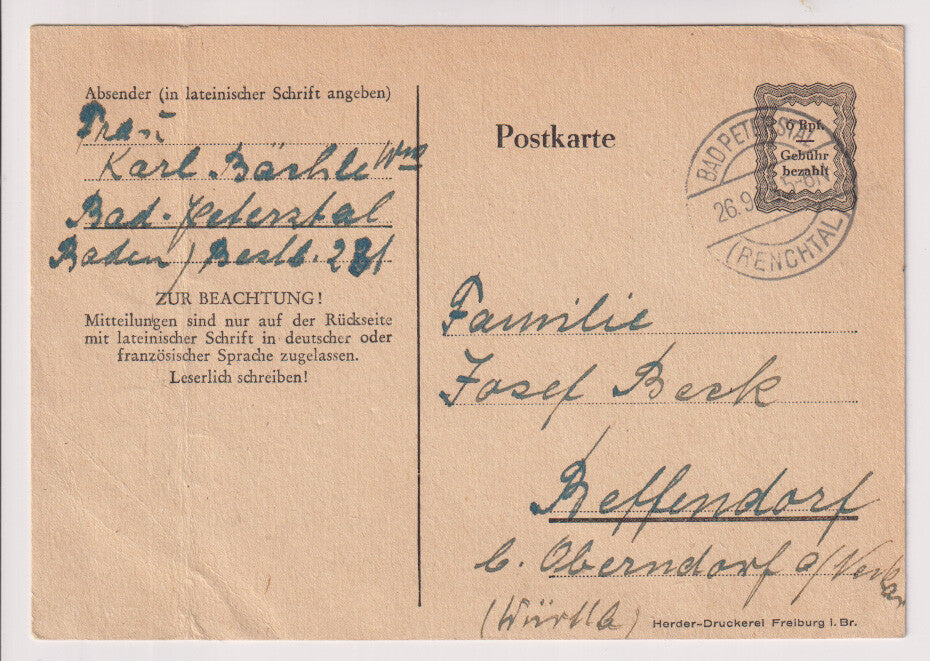 Absender (in lateinischer Schrift angeben)
Frau
Karl Bächle Wwe
Bad-Peterstal
Baden / Bestb. 281
ZUR BEACHTUNG!
Mitteilungen sind nur auf der Rückseite
mit lateinischer Schrift in deutscher oder
französischer Sprache zugelassen.
Leserlich schreiben!
Postkarte
6 Rpf.
Gebühr
bezahlt
BAD PETERSTAL
26.9
(RENCHTAL)
Familie
Josef Beck
Beffendorf
b. Oberndorf a/Neckar
(Württb)
Herder-Druckerei Freiburg i. Br.